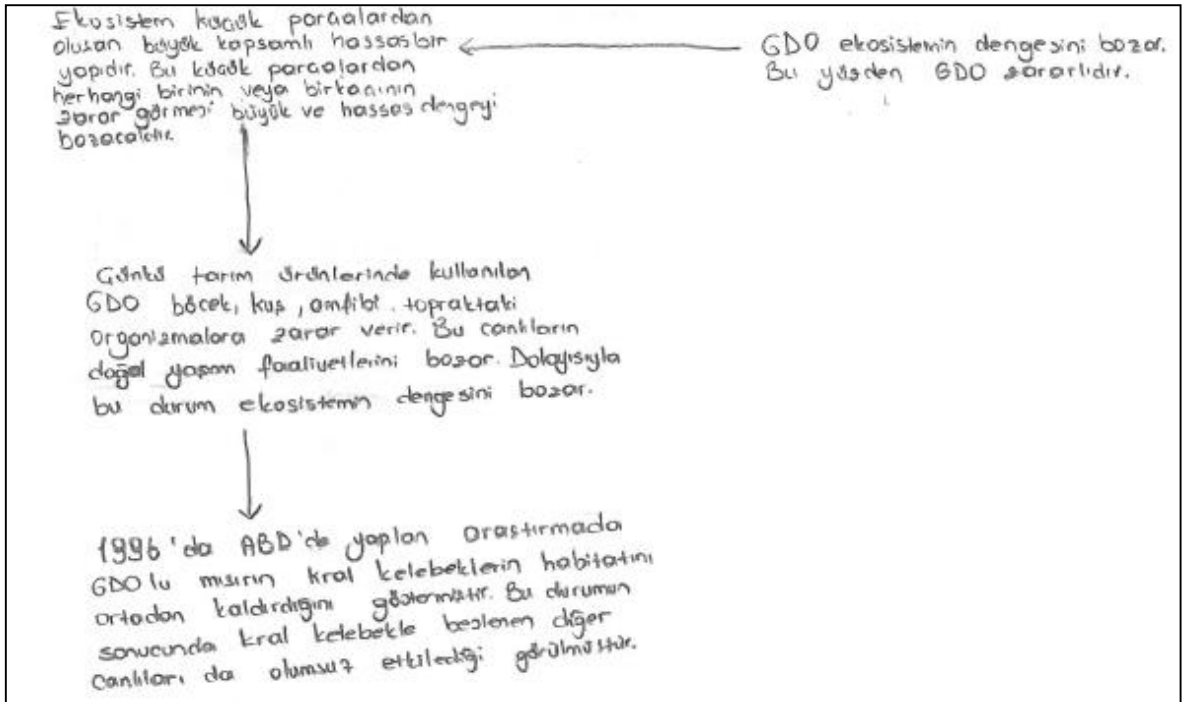 GDO ekosistemin dengesini bozar.
Bu yüzden GDO zararlıdır.
Ekosistem küçük parçalardan
oluşan büyük kapsamlı hassas bir
yapıdır. Bu küçük parçalardan
herhangi birinin veya birkaçının
zarar görmesi büyük ve hassas dengeyi
bozacaktır.
Günkü tarım ürünlerinde kullanılan
GDO böcek, kuş, amfibi, topraktaki
organizmalara zarar verir. Bu canlıların
doğal yaşam faaliyetlerini bozar. Dolayısıyla
bu durum ekosistemin dengesini bozar.
1996'da ABD'de yapılan araştırmada
GDO lu mısırın kral kelebeklerin habitatını
ortadan kaldırdığını göstermiştir. Bu durumun
sonucunda kral kelebekle beslenen diğer
canlıları da olumsuz etkilediği görülmüştür.